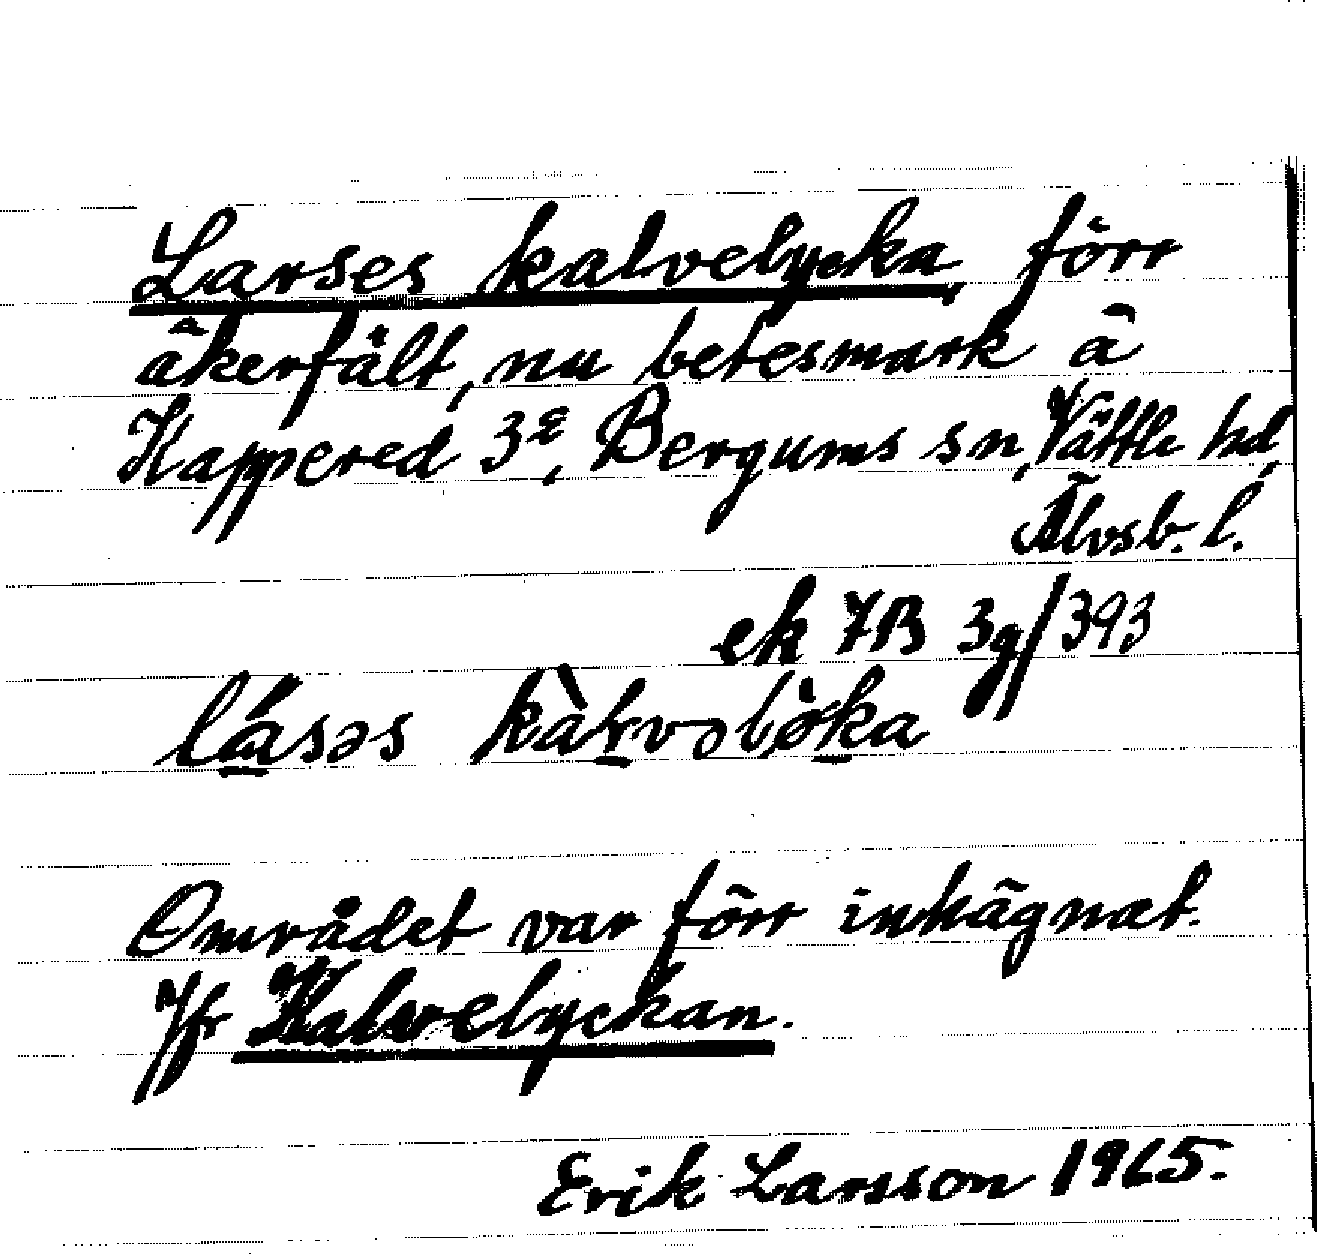 Larses kalvelycka, förr
åkerfält, nu betesmark å
Kappered 3², Bergums sn, Vättle hd,
Älvsb. l.
ek 7B 3g/393
lásəs kàḷvəlỳka
Området var förr inhägnat.
Jfr Kalvelyckan.
Erik Larsson 1965.